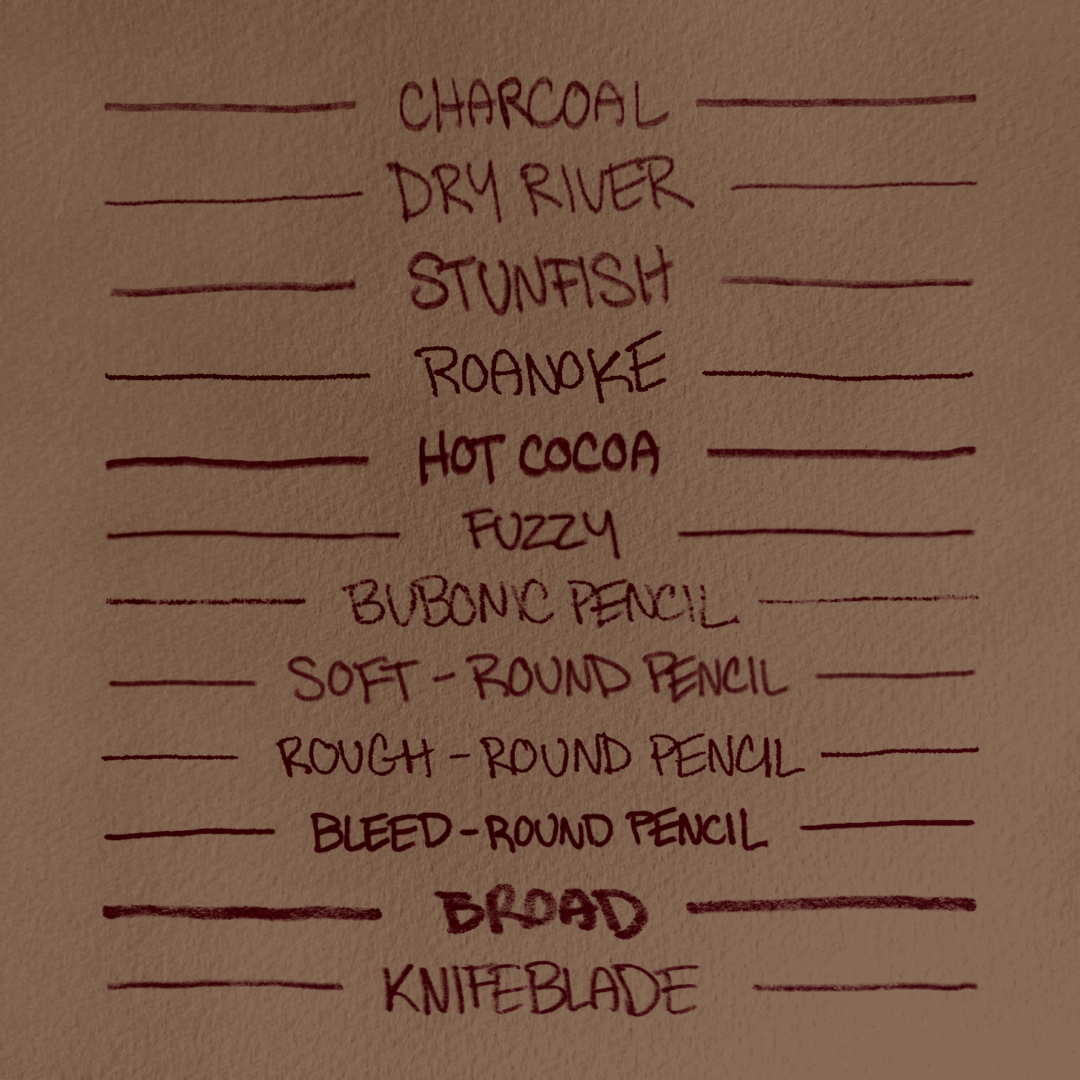 CHARCOAL
DRY RIVER
STUNFISH
ROANOKE
HOT COCOA
FUZZY
BUBONIC PENCIL
SOFT - ROUND PENCIL
ROUGH - ROUND PENCIL
BLEED - ROUND PENCIL
BROAD
KNIFEBLADE